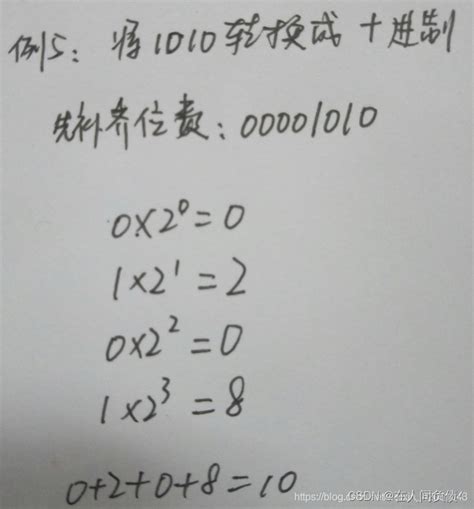 例5：将1010转换成十进制
先补齐位数：00001010
0×2⁰=0
1×2¹=2
0×2²=0
1×2³=8
0+2+0+8=10
CSDN@在人间负债